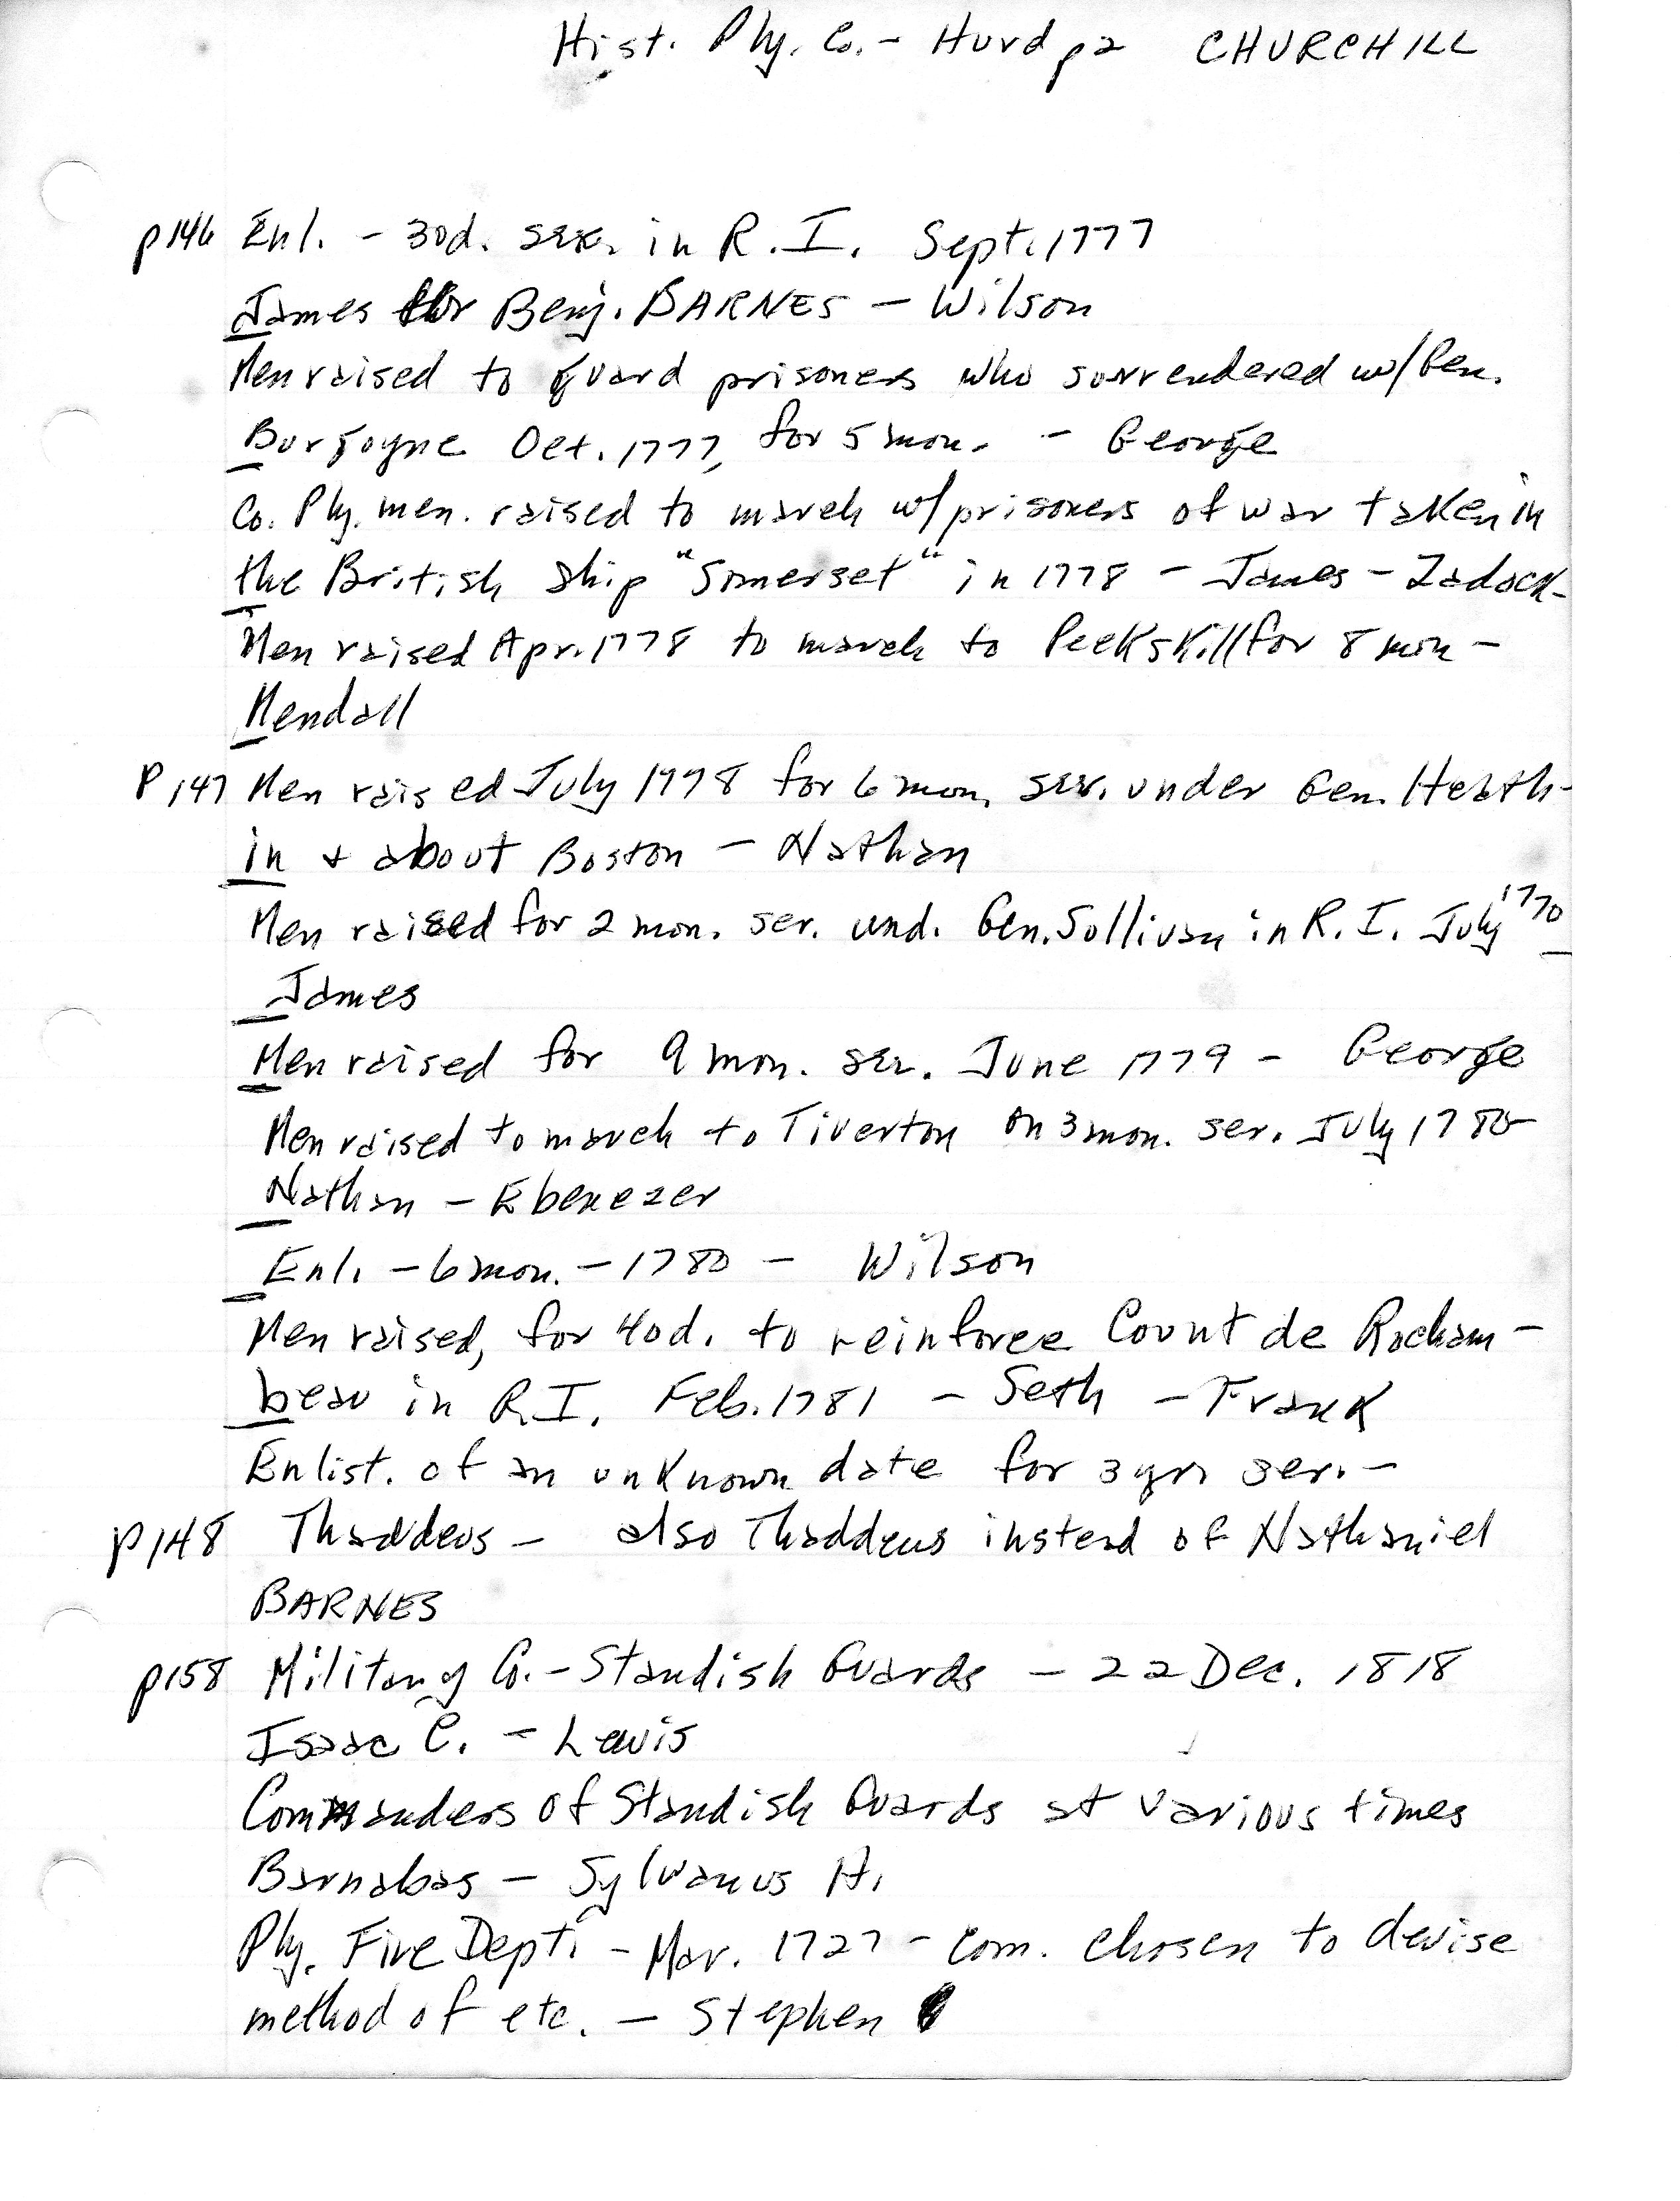 Hist. Ply. Co. - Hurd p2 CHURCHILL
p146 Enl. - 30d. ser. in R.I. Sept. 1777
James for Benj. BARNES - Wilson
Men raised to guard prisoners who surrendered w/Gen.
Burgoyne Oct. 1777, for 5 mon. - George
Co. Ply. men. raised to march w/prisoners of war taken in
the British ship "Somerset" in 1778 - James - Zadock -
Men raised Apr. 1778 to march to Peekskill for 8 mon -
Mendall
p147 Men raised July 1778 for 6 mon. ser. under Gen. Heath -
in + about Boston - Nathan
Men raised for 2 mon. ser. und. Gen. Sullivan in R.I. July 1770 -
James
Men raised for 9 mon. ser. June 1779 - George
Men raised to march to Tiverton on 3 mon. ser. July 1780 -
Nathan - Ebenezer
Enl. - 6 mon. - 1780 - Wilson
Men raised, for 40d. to reinforce Count de Rocham-
beau in R.I. Feb. 1781 - Seth - Frank
Enlist. of an unknown date for 3 yrs ser. -
p148 Thaddeus - also Thaddeus instead of Nathaniel
BARNES
p158 Military Co. - Standish Guards - 22 Dec. 1818
Isaac C. - Lewis
Commanders of Standish Guards at various times
Barnabas - Sylvanus H.
Ply. Fire Dept. - Mar. 1727 - com. chosen to devise
method of etc. - Stephen